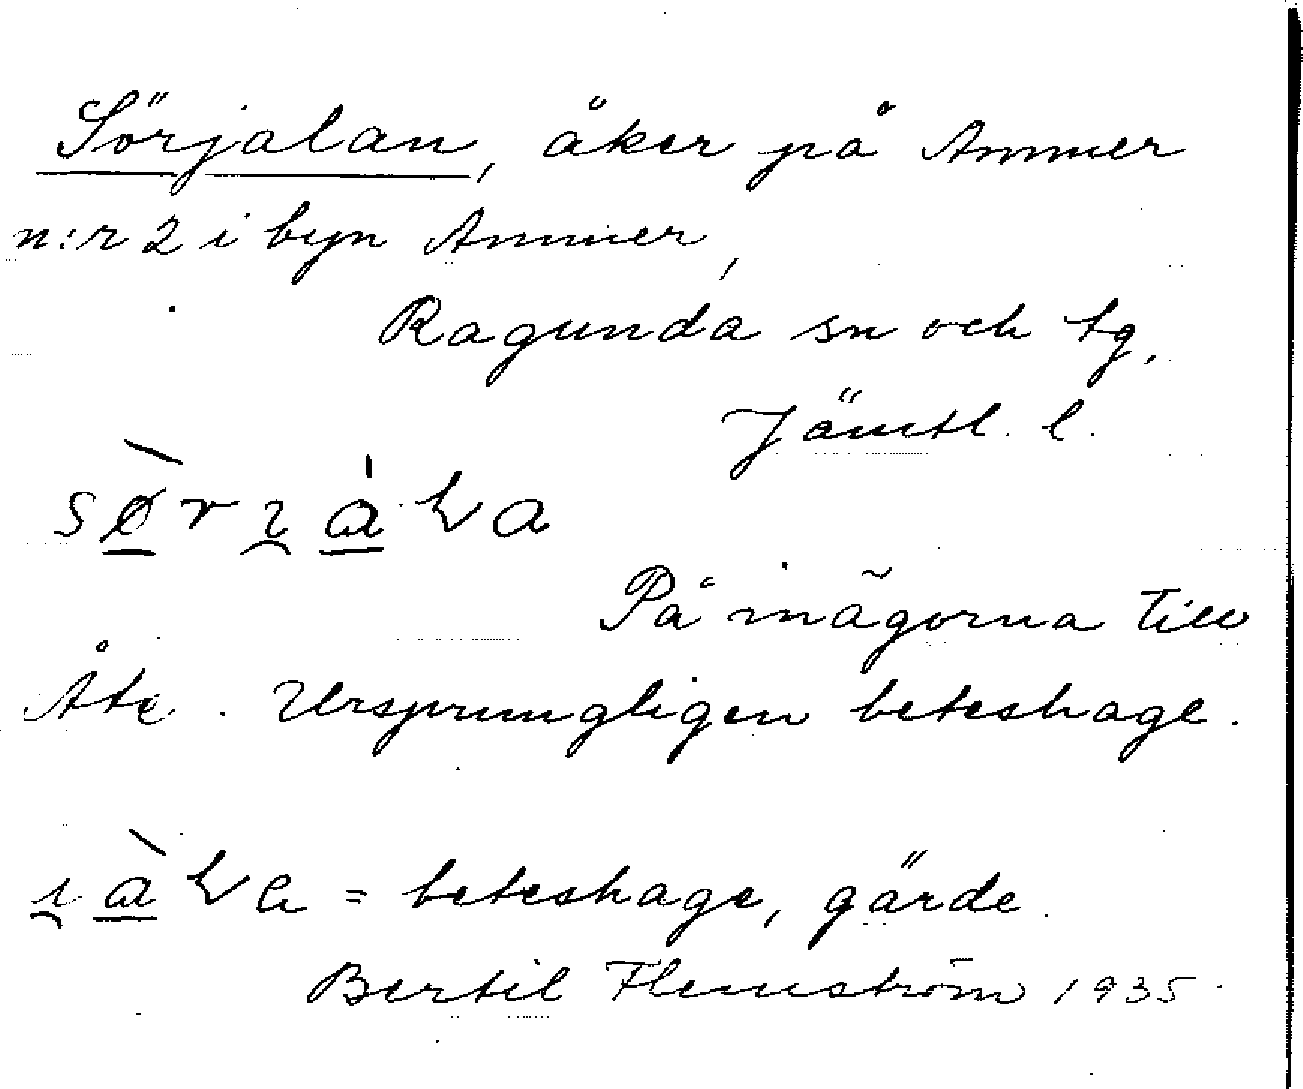 Sörjalan, åker på Ammer
n:r 2 i byn Ammer,
Ragunda sn och tg,
Jämtl. l.
På inägorna till
Åte. Ursprungligen beteshage.
= beteshage, gärde.
Bertil Flemström 1935